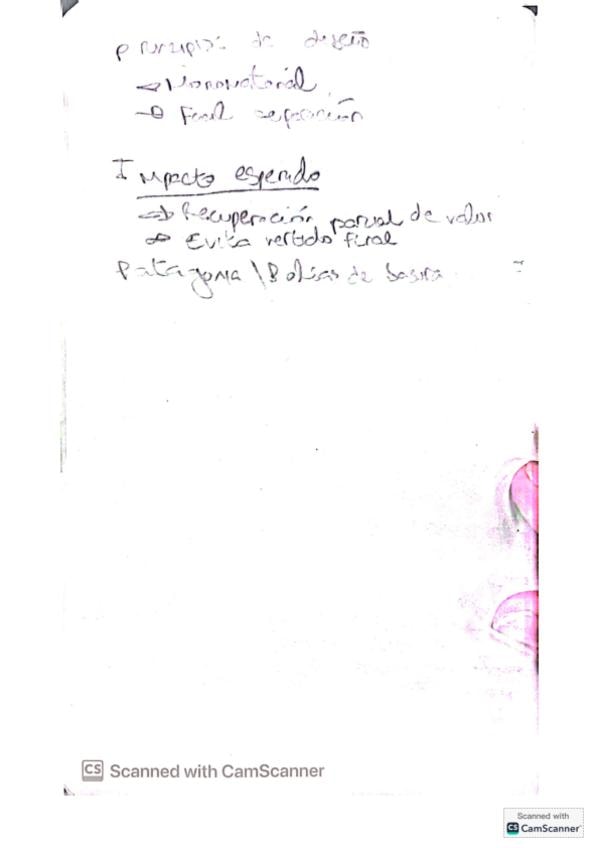 principios de diseño
→ Monomaterial
→ Fácil separación
Impacto esperado
→ Recuperación parcial de valor
→ Evita vertido final
Patagonia \ Bolsas de basura
CS Scanned with CamScanner
Scanned with
CS CamScanner